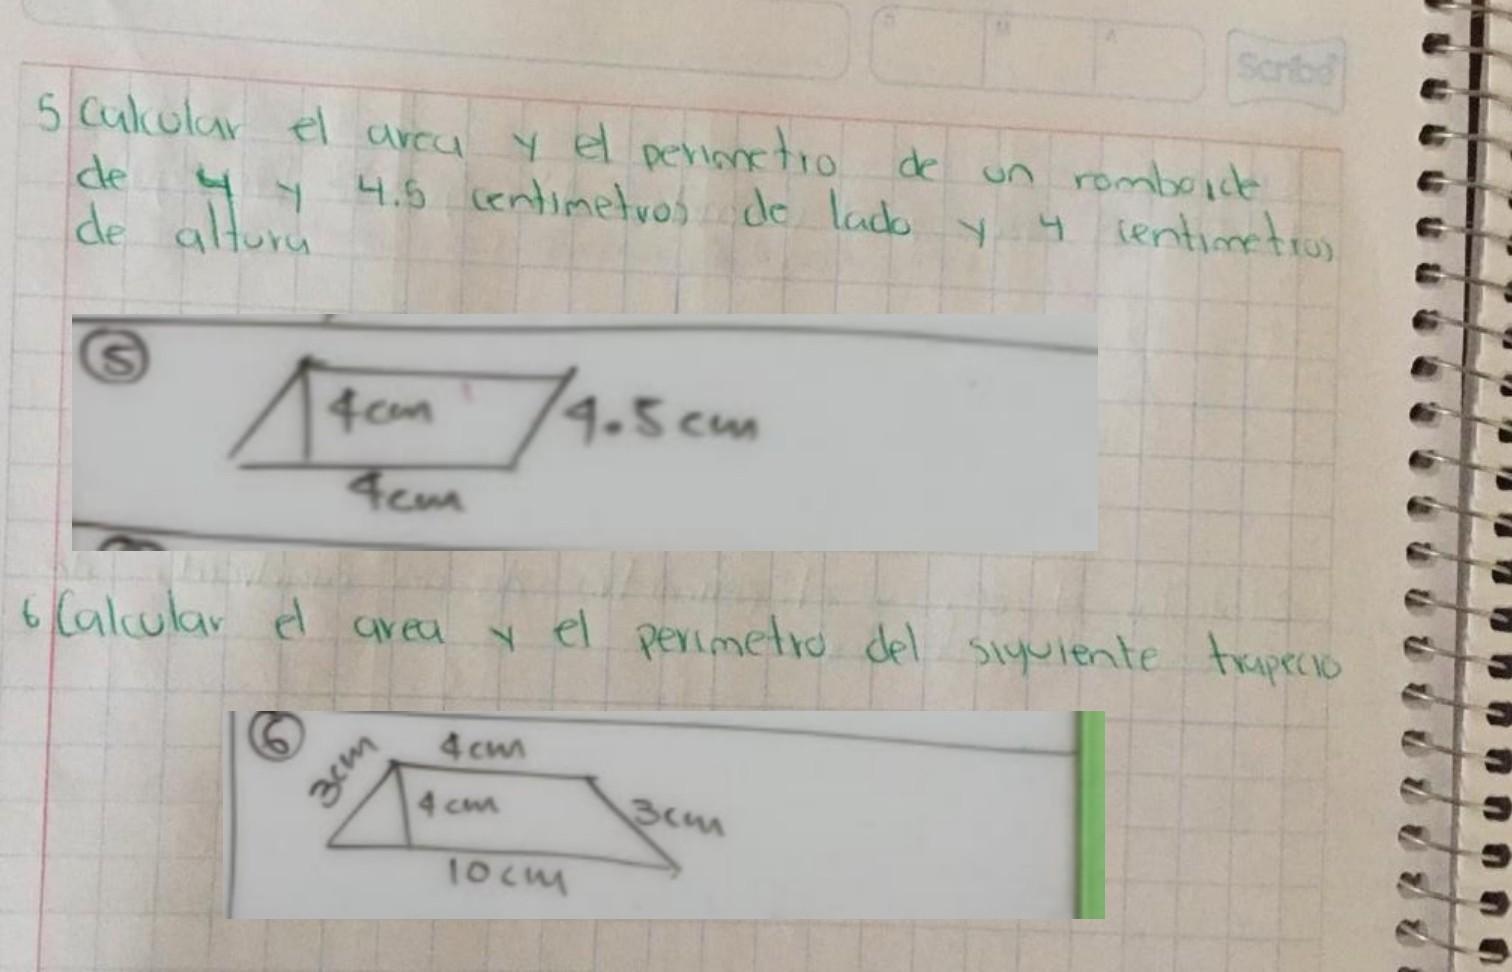 Scribe
5 Calcular el area y el perimetro de un romboide
de 4 y 4.5 centimetros de lado y 4 centimetros
de altura
5
4cm
4.5cm
4cm
6 Calcular el area y el perimetro del siguiente trapecio
6
3cm
4cm
4cm
3cm
10cm